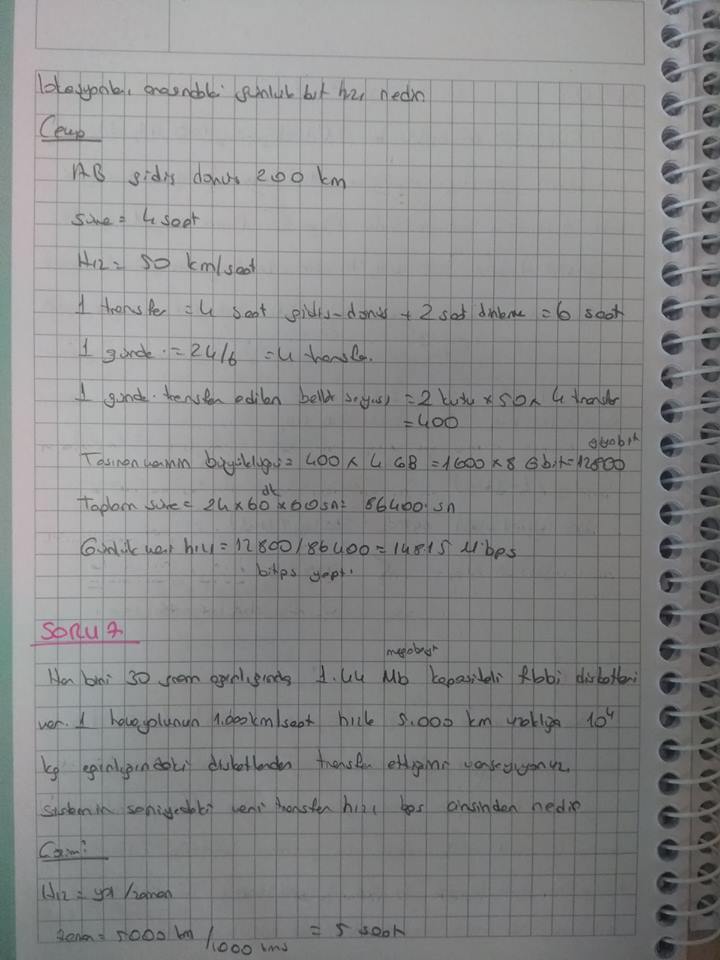 lokasyonlar arasındaki günlük bit hızı nedir
Cevap
AB gidiş dönüş 200 km
süre = 4 saat
Hız = 50 km/saat
1 transfer = 4 saat gidiş-dönüş + 2 saat dinlenme = 6 saat
1 günde = 24/6 = 4 transfer.
1 günde transfer edilen bellek sayısı = 2 kutu x 50 x 4 transfer
= 400
gigabit
Taşınan verinin büyüklüğü = 400 x 4 GB = 1600 x 8 Gbit = 12800
dk
Toplam süre = 24 x 60 x 60 sn = 86400 sn
Günlük veri hızı = 12800 / 86400 = 14815 Mbps
bitps yaptı
SORU 7
megabayt
Her biri 30 gram ağırlığında 1.44 Mb kapasiteli floppi disketleri
var. 1 havayolunun 1.000 km/saat hızla 5.000 km uzaklığa 10⁴
kg ağırlığındaki disketlerden transfer ettiğini varsayıyoruz.
Sistemin saniyedeki veri transfer hızı bps cinsinden nedir
Cevap:
Hız = yol / zaman
zaman = 5000 km / 1000 kms = 5 saat